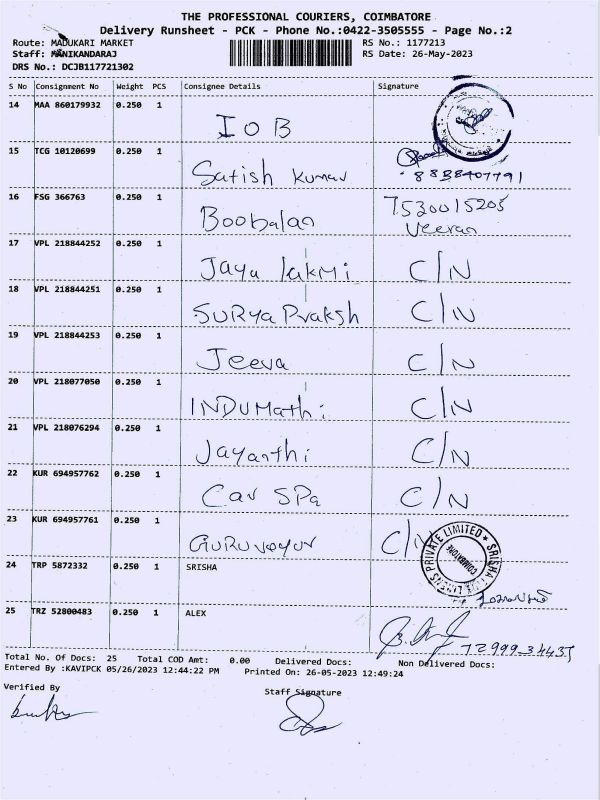 THE PROFESSIONAL COURIERS, COIMBATORE
Delivery Runsheet - PCK - Phone No.:0422-3505555 - Page No.:2
Route: MADUKARI MARKET RS No.: 1177213
Staff: MANIKANDARAJ RS Date: 26-May-2023
DRS No.: DCJB117721302
S No Consignment No Weight PCS Consignee Details Signature
14 MAA 860179932 0.250 1 IOB
15 TCG 10120699 0.250 1 Satish Kumar 8838407791
16 FSG 366763 0.250 1 Boobalan 7530015205 Veeran
17 VPL 218844252 0.250 1 Jaya lakmi C/N
18 VPL 218844251 0.250 1 Surya Praksh C/N
19 VPL 218844253 0.250 1 Jeeva C/N
20 VPL 218077050 0.250 1 INDUMathi C/N
21 VPL 218076294 0.250 1 Jayanthi C/N
22 KUR 694957762 0.250 1 Car SPa C/N
23 KUR 694957761 0.250 1 Guruvayur C/N
PRIVATE LIMITED * SRISHA
COIMBATORE
24 TRP 5872332 0.250 1 SRISHA
25 TRZ 52800483 0.250 1 ALEX
Total No. Of Docs: 25 Total COD Amt: 0.00 Delivered Docs: Non Delivered Docs:
Entered By :KAVIPCK 05/26/2023 12:44:22 PM Printed On: 26-05-2023 12:49:24
Verified By Staff Signature